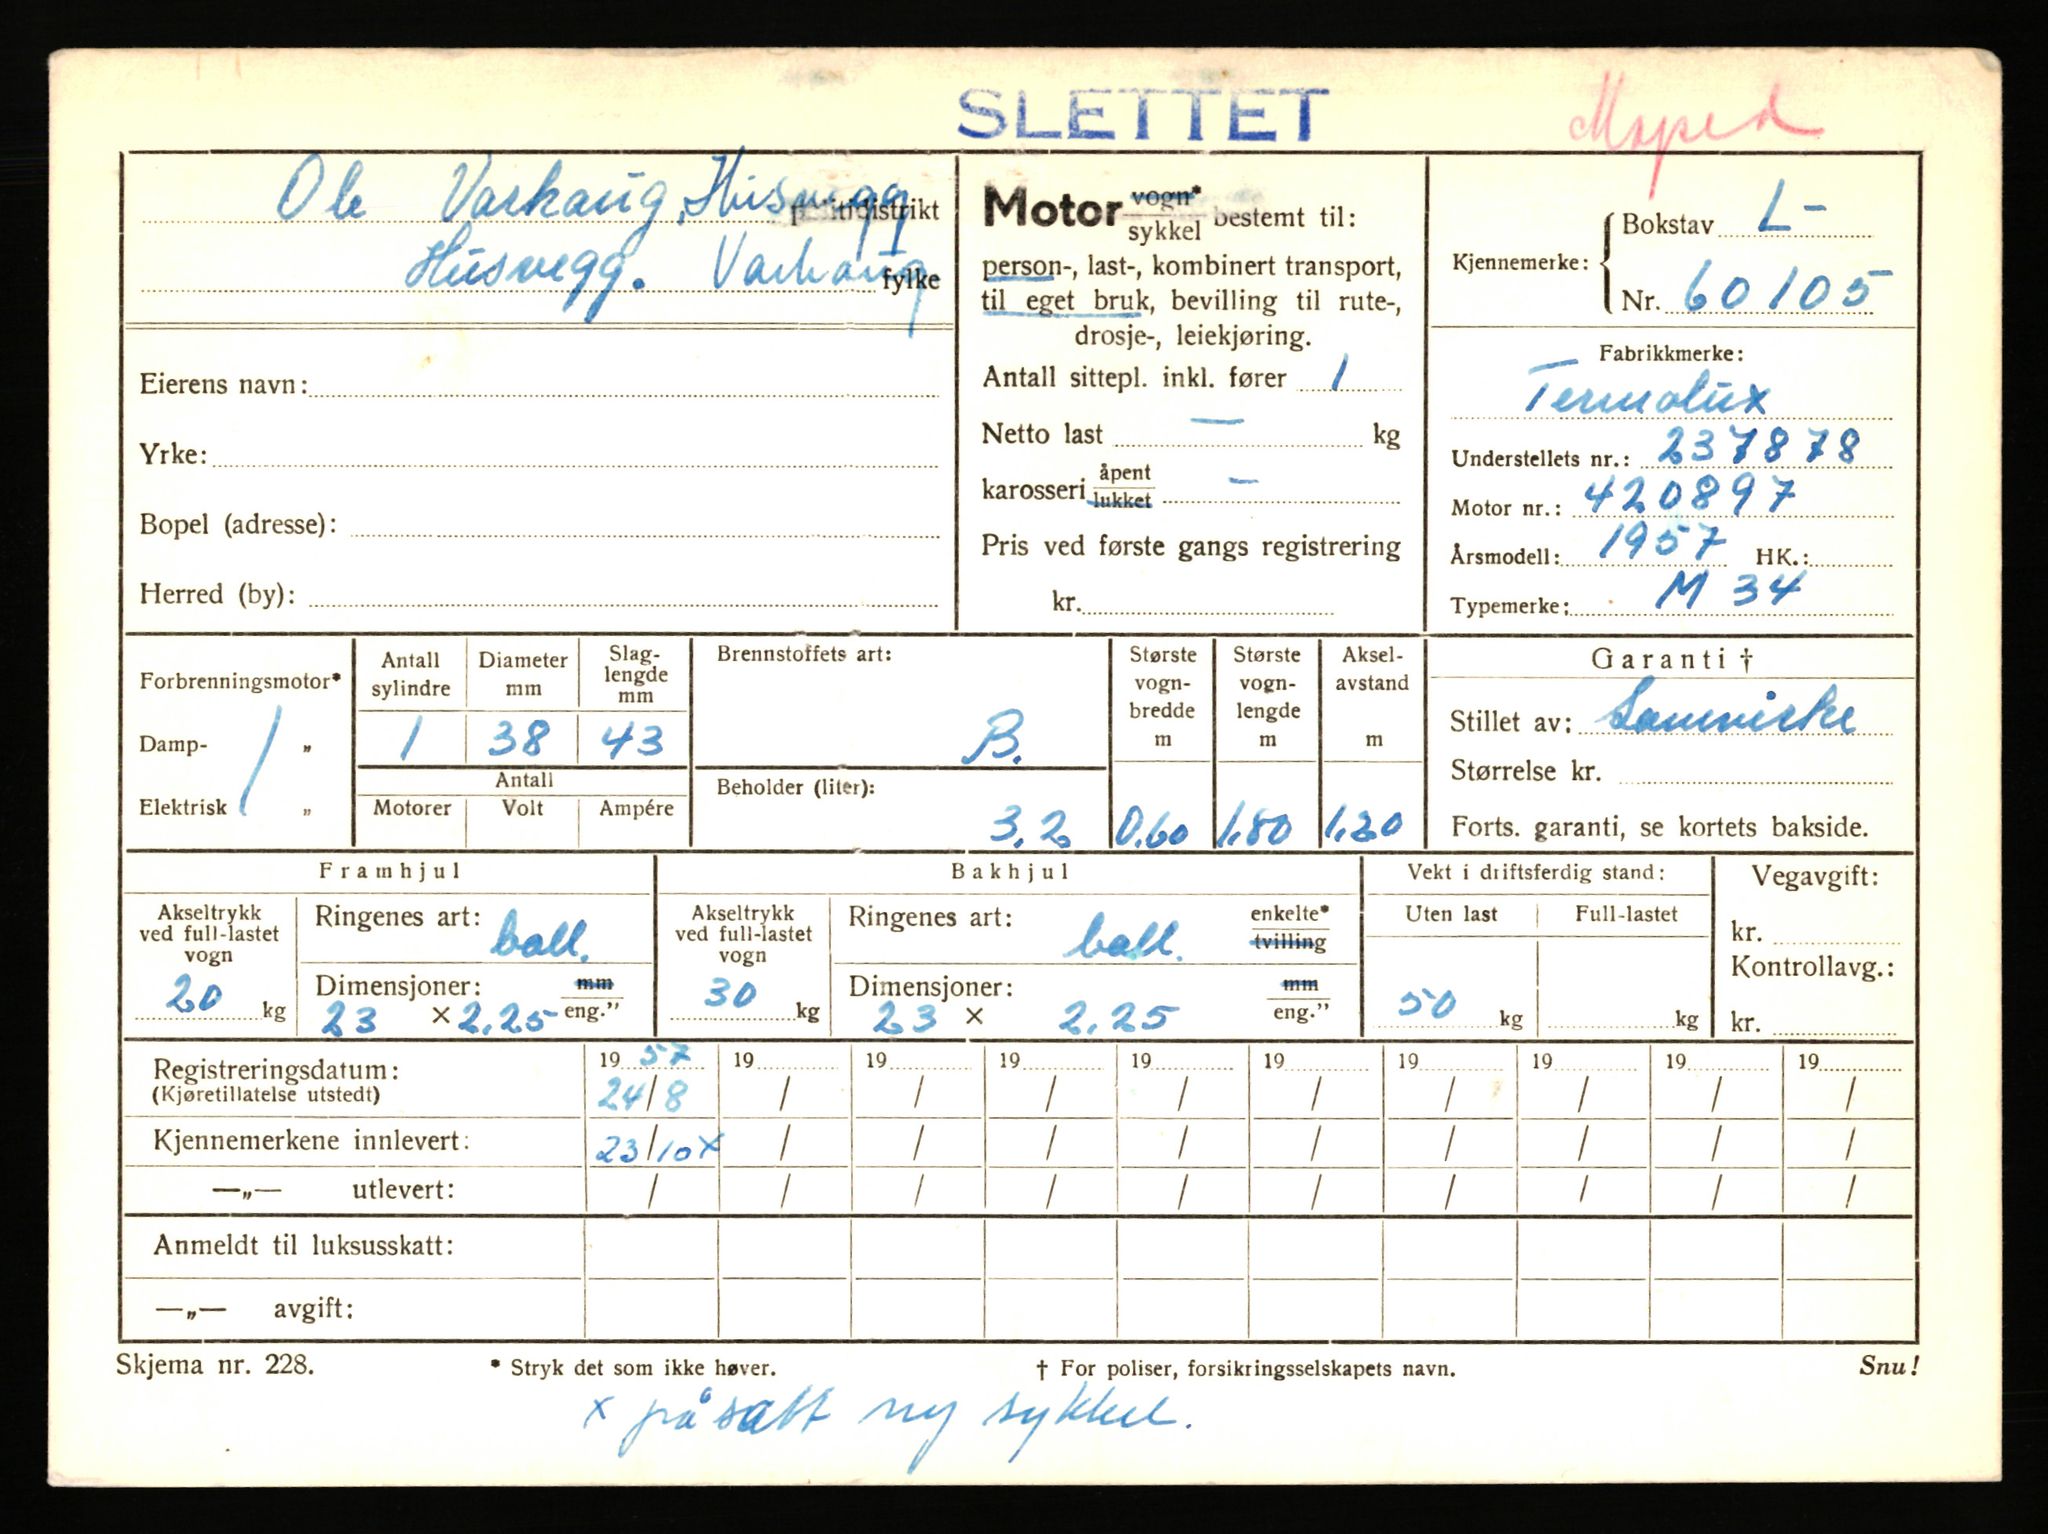 SLETTET
Moped
Ole Varhaug, Husvegg politidistrikt
Husvegg. Varhaug fylke
Eierens navn:
Yrke:
Bopel (adresse):
Herred (by):
Motor vogn* sykkel bestemt til:
person-, last-, kombinert transport,
til eget bruk, bevilling til rute-,
drosje-, leiekjøring.
Antall sittepl. inkl. fører 1
Netto last — kg
karosseri åpent lukket —
Pris ved første gangs registrering
kr.
Kjennemerke: Bokstav L-
Nr. 60105
Fabrikkmerke:
Termolux
Understellets nr.: 237878
Motor nr.: 420897
Årsmodell: 1957 HK.:
Typemerke: M 34
Forbrenningsmotor*
Damp- „
Elektrisk „
Antall sylindre
Diameter mm
Slag-
lengde
mm
1 38 43
Antall
Motorer Volt Ampére
Brennstoffets art:
B.
Beholder (liter):
3,2
Største
vogn-
bredde
m
0,60
Største
vogn-
lengde
m
1,80
Aksel-
avstand
m
1,20
Garanti †
Stillet av: Samvirke
Størrelse kr.
Forts. garanti, se kortets bakside.
Framhjul
Akseltrykk
ved full-lastet
vogn
20 kg
Ringenes art: ball.
Dimensjoner: mm
23 × 2,25 eng."
Bakhjul
Akseltrykk
ved full-lastet
vogn
30 kg
Ringenes art: ball. enkelte* tvilling
Dimensjoner: mm
23 × 2,25 eng."
Vekt i driftsferdig stand:
Uten last Full-lastet
50 kg kg
Vegavgift:
kr.
Kontrollavg.:
kr.
Registreringsdatum: 19 57 19 19 19 19 19 19 19 19 19
(Kjøretillatelse utstedt) 24/8 / / / / / / / / /
Kjennemerkene innlevert: 23/10 x / / / / / / / / /
—„— utlevert: / / / / / / / / / /
Anmeldt til luksusskatt:
—„— avgift:
Skjema nr. 228. * Stryk det som ikke høver. † For poliser, forsikringsselskapets navn. Snu!
x påsatt ny sykkel.